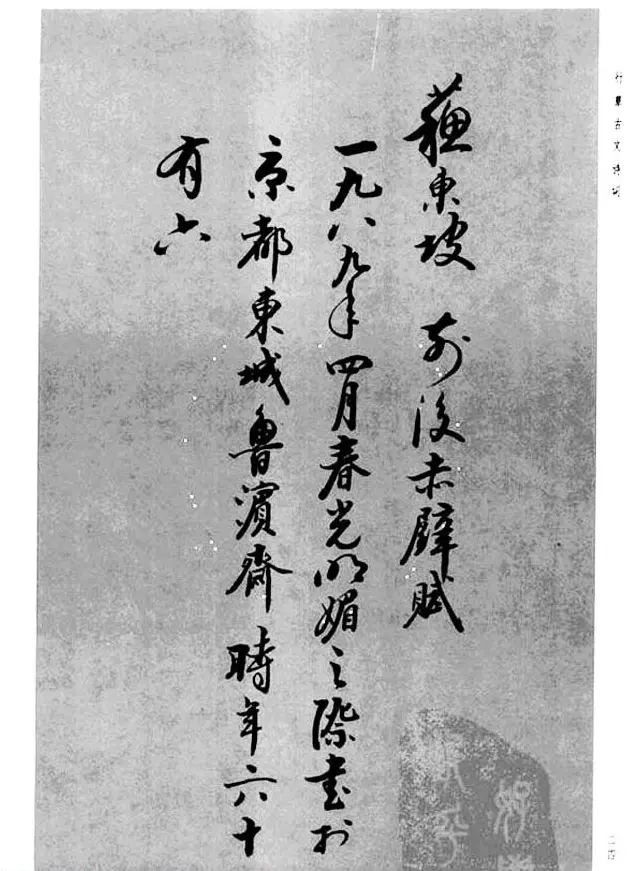 蘓東坡 前後赤壁賦
一九八九年四月春光明媚之際書於
京都東城魯濱齋時年六十
有六
行草古文诗词